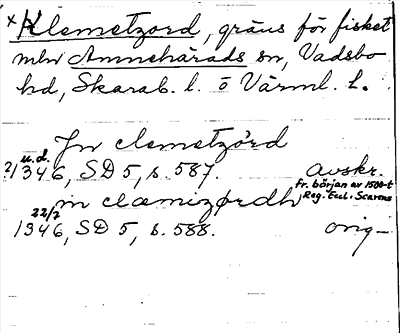 x Klemetzord, gräns för fisket
mlw Amnehärads sn, Vadsbo
hd, Skarab. l. o Värml. l.
Jn clemetzörd
u.d.
?1346, SD 5, s. 587. avskr.
fr. början av 1500-t
Reg. Eccl. Scarens
in clæmizørdh
22/2
1346, SD 5, s. 588. orig